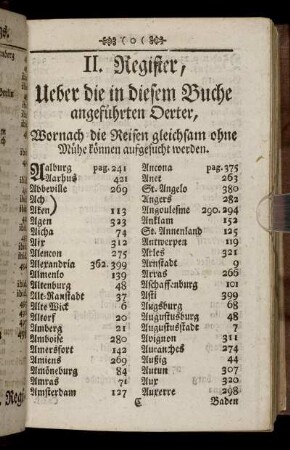 ( o )
II. Register,
Ueber die in diesem Buche
angeführten Oerter,
Wornach die Reisen gleichsam ohne
Mühe können aufgesucht werden.
Aalburg pag. 241
Aarhus 421
Abbeville 269
Ach)
Aken) 113
Agen 323
Aicha 74
Aix 312
Alencon 275
Alexandria 362. 399
Almenlo 139
Altenburg 48
Alt-Ranstadt 37
Alte Wick 66
Altorf 20
Amberg 21
Amboise 280
Amersfort 142
Amiens 269
Amöneburg 84
Amras 71
Amsterdam 127
Ancona pag. 375
Anet 263
St. Angelo 380
Angers 282
Angoulesme 290. 294
Anklam 152
St. Annenland 125
Antwerpen 119
Arles 321
Arnstadt 9
Arras 266
Aschaffenburg 101
Asti 399
Augsburg 68
Augustusburg 48
Augustusstadt 7
Avignon 311
Auranches 274
Außig 44
Autun 307
Aux 320
Auxerre 298
C Baden